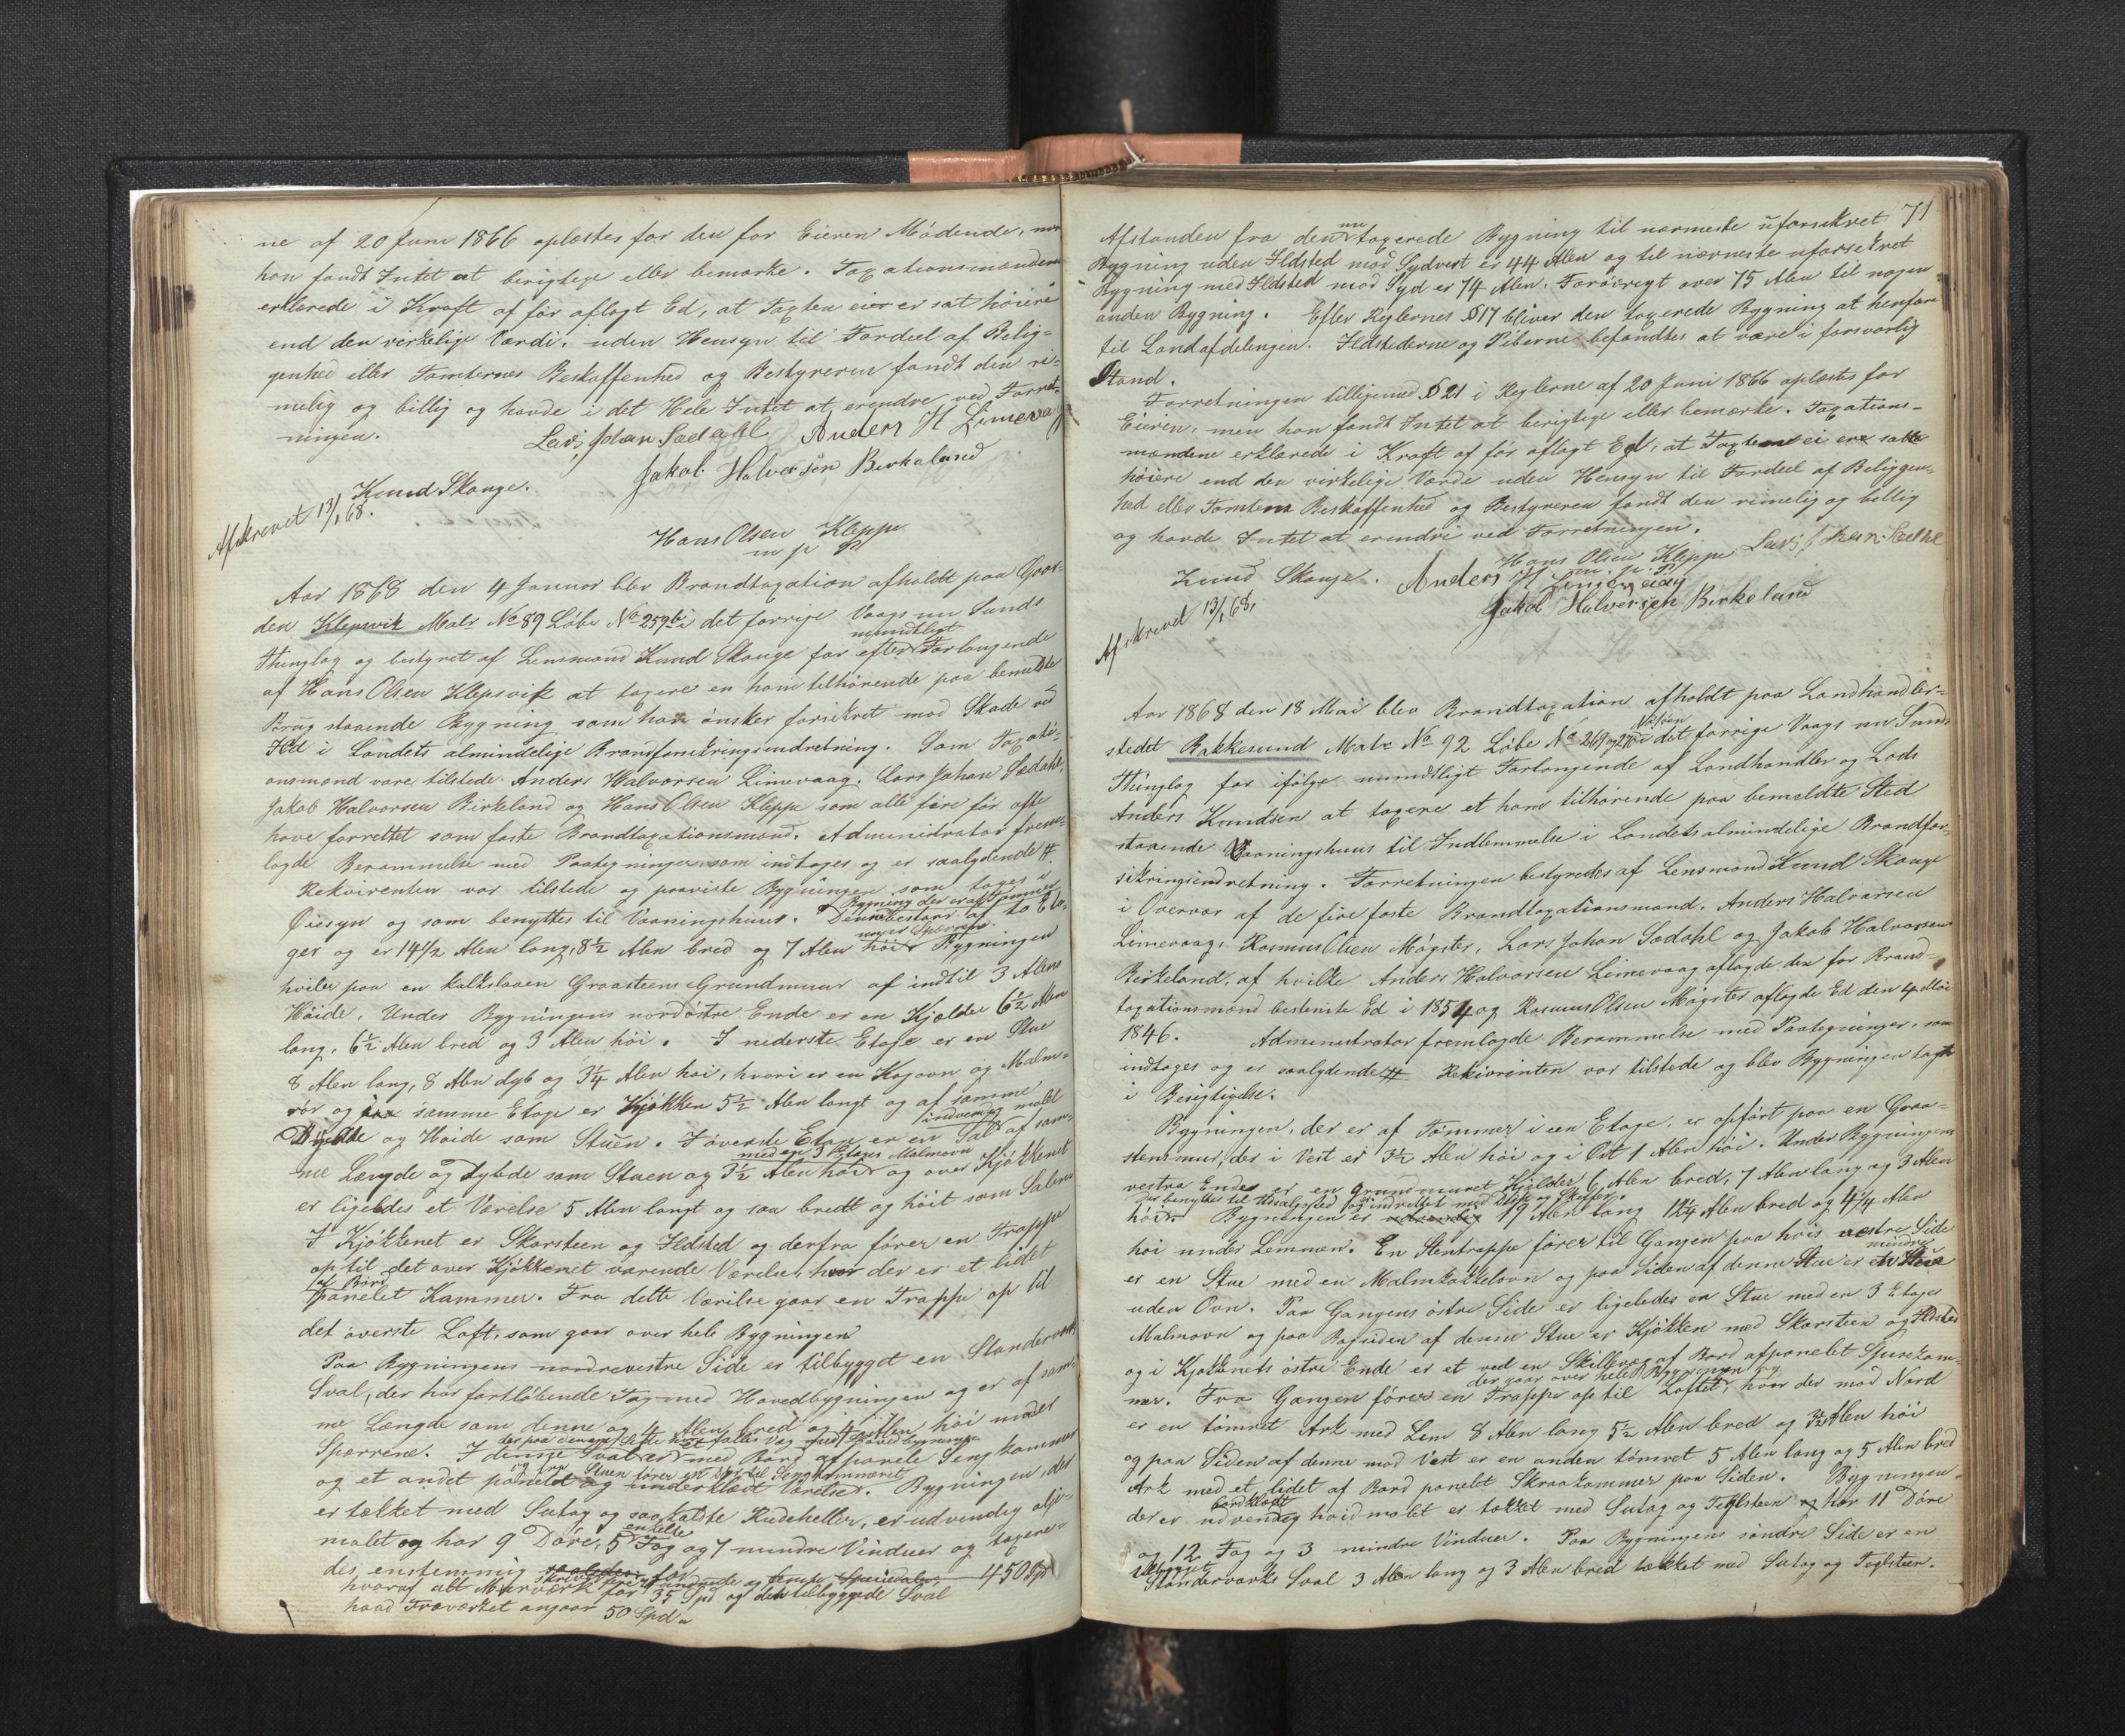 ne af 20 Juni 1866 oplæstes for den for Eieren Mödende, men
han fandt Intet at berigtige eller bemærke. Taxationsmændene
erklærede i Kraft af før aflagt Ed, at Taxten ei er sat høiere
end den virkelige Værdi, uden Hensyn til Fordeel af Belig-
genhed eller Tomternes Beskaffenhed og Bestyreren fandt den ri-
melig og billig og havde i det Hele Intet at erendre ved Forret-
ningen.
Lars Johan Sædahl Anders H Limevaag
Knud Skauge. Jakob Halvorsen Birkeland
Afskrevet 13/1 68.
Hans Olsen Kleppe
m p P
Aar 1868 den 4 Januar blev Brandtaxation afholdt paa Gaar-
den Klepsvik Matr No 89 Löbe No 259b i det forrige Vaags nu Sunds
Thinglag og bestyret af Lensmand Knud Skauge for efter mundtligt Forlangende
af Hans Olsen Klepsvik at taxere en ham tilhørende paa bemeldte
Brug staaende Bygning som han ønsker forsikret mod Skade ved
Ild i Landets almindelige Brandforsikringsindretning. Som Taxati-
onsmænd vare tilstede Anders Halvorsen Limevaag, Lars Johan Sædahl,
Jakob Halvorsen Birkeland og Hans Olsen Kleppe som alle fire før ofte
have forrettet som faste Brandtaxationsmænd. Administrator frem-
lagde Berammelse med Paategninger som indtages og er saalydende #.
Rekvirenten var tilstede og paaviste Bygningen som toges i
Øiesyn og som benyttes til Vaaningshuus. Denne Bygning der er af Tømmer bestaar af to Eta-
ger og er 14 1/2 Alen lang, 8 1/2 Alen bred og 7 Alen høi under Sperrene. Bygningen
hviler paa en kalkslaaen Graasteens Grundmuur af indtil 3 Alens
Høide. Under Bygningens nordøstre Ende er en Kjælder 6 1/2 Alen
lang, 6 1/2 Alen bred og 3 Alen høi. I nederste Etage er en Stue
8 Alen lang, 8 Alen dyb og 3 1/4 Alen høi, hvori er en Kogovn og Malm-
rør og i samme Etage er Kjøkken 5 1/2 Alen langt og af samme
Dybde og Høide som Stuen. I øverste Etage er en indvendig malet Sal af sam-
me Længde og Dybde som Stuen og 3 1/2 Alen høi med en 3 Etages Malmovn og over Kjøkkenet
er ligeledes et Værelse 5 Alen langt og saa bredt og høit som Salen
I Kjøkkenet er Skorsteen og Ildsted og derfra fører en Trappe
op til det over Kjøkkenet værende Værelse, hvor der er et lidet
af Bord panelet Kammer. Fra dette Værelse gaar en Trappe op til
det øverste Loft, som gaar over hele Bygningen
Paa Bygningens nordrevestre Side er tilbygget en Standerværks
Sval, der har fortløbende Tag med Hovedbygningen og er af sam-
me Længde som denne og 4 Alen bred og 4 Alen høi under
Sperrene. I denne Sval er et med Bord afpanelet Sengkammer
og et andet panelet og underklædt Værelse. Bygningen, der
er tækket med Sutag og saakaldte Rudeheller, er udvendig olje-
malet og har 9 Døre, 5 enkelte Fag og 7 mindre Vinduer og taxere-
des enstemmig for 450 Spd
hvoraf alt Muurværk for 35 Spd og den tilbyggede Sval
hvad Træværket angaar 50 Spd
71
Afstanden fra den nu taxerede Bygning til nærmeste uforsikret
Bygning uden Ildsted mod Sydvest er 44 Alen og til nærmeste uforsikret
Bygning med Ildsted mod Syd er 74 Alen. Forøvrigt over 75 Alen til nogen
anden Bygning. Efter Reglernes §17 bliver den taxerede Bygning at henføre
til Landafdelingen. Ildstederne og Piberne befandtes at være i forsvarlig
Stand.
Forretningen tilligemed §21 i Reglerne af 20 Juni 1866 oplæstes for
Eieren, men han fandt Intet at berigtige eller bemærke. Taxations-
mændene erklærede i Kraft af før aflagt Ed, at Taxterne ei ere satte
høiere end den virkelige Værdi uden Hensyn til Fordeel af Beliggen-
hed eller Tomtens Beskaffenhed og Bestyreren fandt den rimelig og billig
og havde Intet at erendre ved Forretningen.
Hans Olsen Kleppe Lars Johan Sædahl
m. p. P
Knud Skauge. Anders H Limevaag
Jakob Halvorsen Birkeland
Afskrevet 13/1 68.
Aar 1868 den 18 Mai blev Brandtaxation afholdt paa Landhandler-
stedet Bakkesund Matr No 92 Löbe No 269 og 270 i det forrige Vaags nu Sunds
Thinglag for ifølge mundtligt Forlangende af Landhandler og Lods
Anders Knudsen at taxere et ham tilhørende paa bemeldte Sted
staaende Vaaningshuus til Indlemmelse i Landets almindelige Brandfor-
sikringsindretning. Forretningen bestyredes af Lensmand Knud Skauge
i Overvær af de fire faste Brandtaxationsmænd, Anders Halvorsen
Limevaag, Rasmus Olsen Møgster, Lars Johan Sædahl og Jakob Halvorsen
Birkeland, af hvilke Anders Halvorsen Limevaag aflagde den for Brand-
taxationsmænd bestemte Ed i 1854 og Rasmus Olsen Møgster aflagde Ed den 4 Mai
1846. Administrator fremlagde Berammelse med Paategninger, som
indtages og er saalydende # Rekvirenten var tilstede og blev Bygningen tagen
i Besigtigelse.
Bygningen, der er af Tømmer i een Etage, er opført paa en Graa-
steensmur, der i Vest er 3 1/2 Alen høi og i Øst 1 Alen høi. Under Bygningens
vestre Ende er en grundmuret Kjælder 6 Alen bred, 7 Alen lang og 3 Alen
høi der benyttes til Udsalgssted og er indrettet med Disk og Skuffer. Bygningen er 19 Alen lang 12 1/4 Alen bred og 4 1/4 Alen
høi under Lemmen. En Steentrappe fører til Gangen paa hvis vestre Side
er en Stue med en Malmkakkelovn og paa Siden af denne Stue er en mindre Stue
uden Ovn. Paa Gangens østre Side er ligeledes en Stue med en 3 Etages
Malmovn og paa Bagsiden af denne Stue er Kjøkken med Skorsteen og Ildsted
og i Kjøkkenets østre Ende er et ved en Skillevæg af Bord afpanelet Spisekam-
mer. Fra Gangen fører en Trappe op til Loftet, der gaar over hele Bygningen og hvor der mod Nord
er en tømret Ark med Lem 8 Alen lang 5 1/2 Alen bred og 3 1/2 Alen høi
og paa Siden af denne mod Vest er en anden tømret 5 Alen lang og 5 Alen bred
Ark med et lidet af Bord panelet Skraakammer paa Siden. Bygningen
der er udvendig bordklædt hvidmalet er tækket med Sutag og Teglsteen og har 11 Døre
og 12 Fag og 3 mindre Vinduer. Paa Bygningens søndre Side er en
tilbygget Standerværks Sval 3 Alen lang og 3 Alen bred tækket med Sutag og Taglsteen.